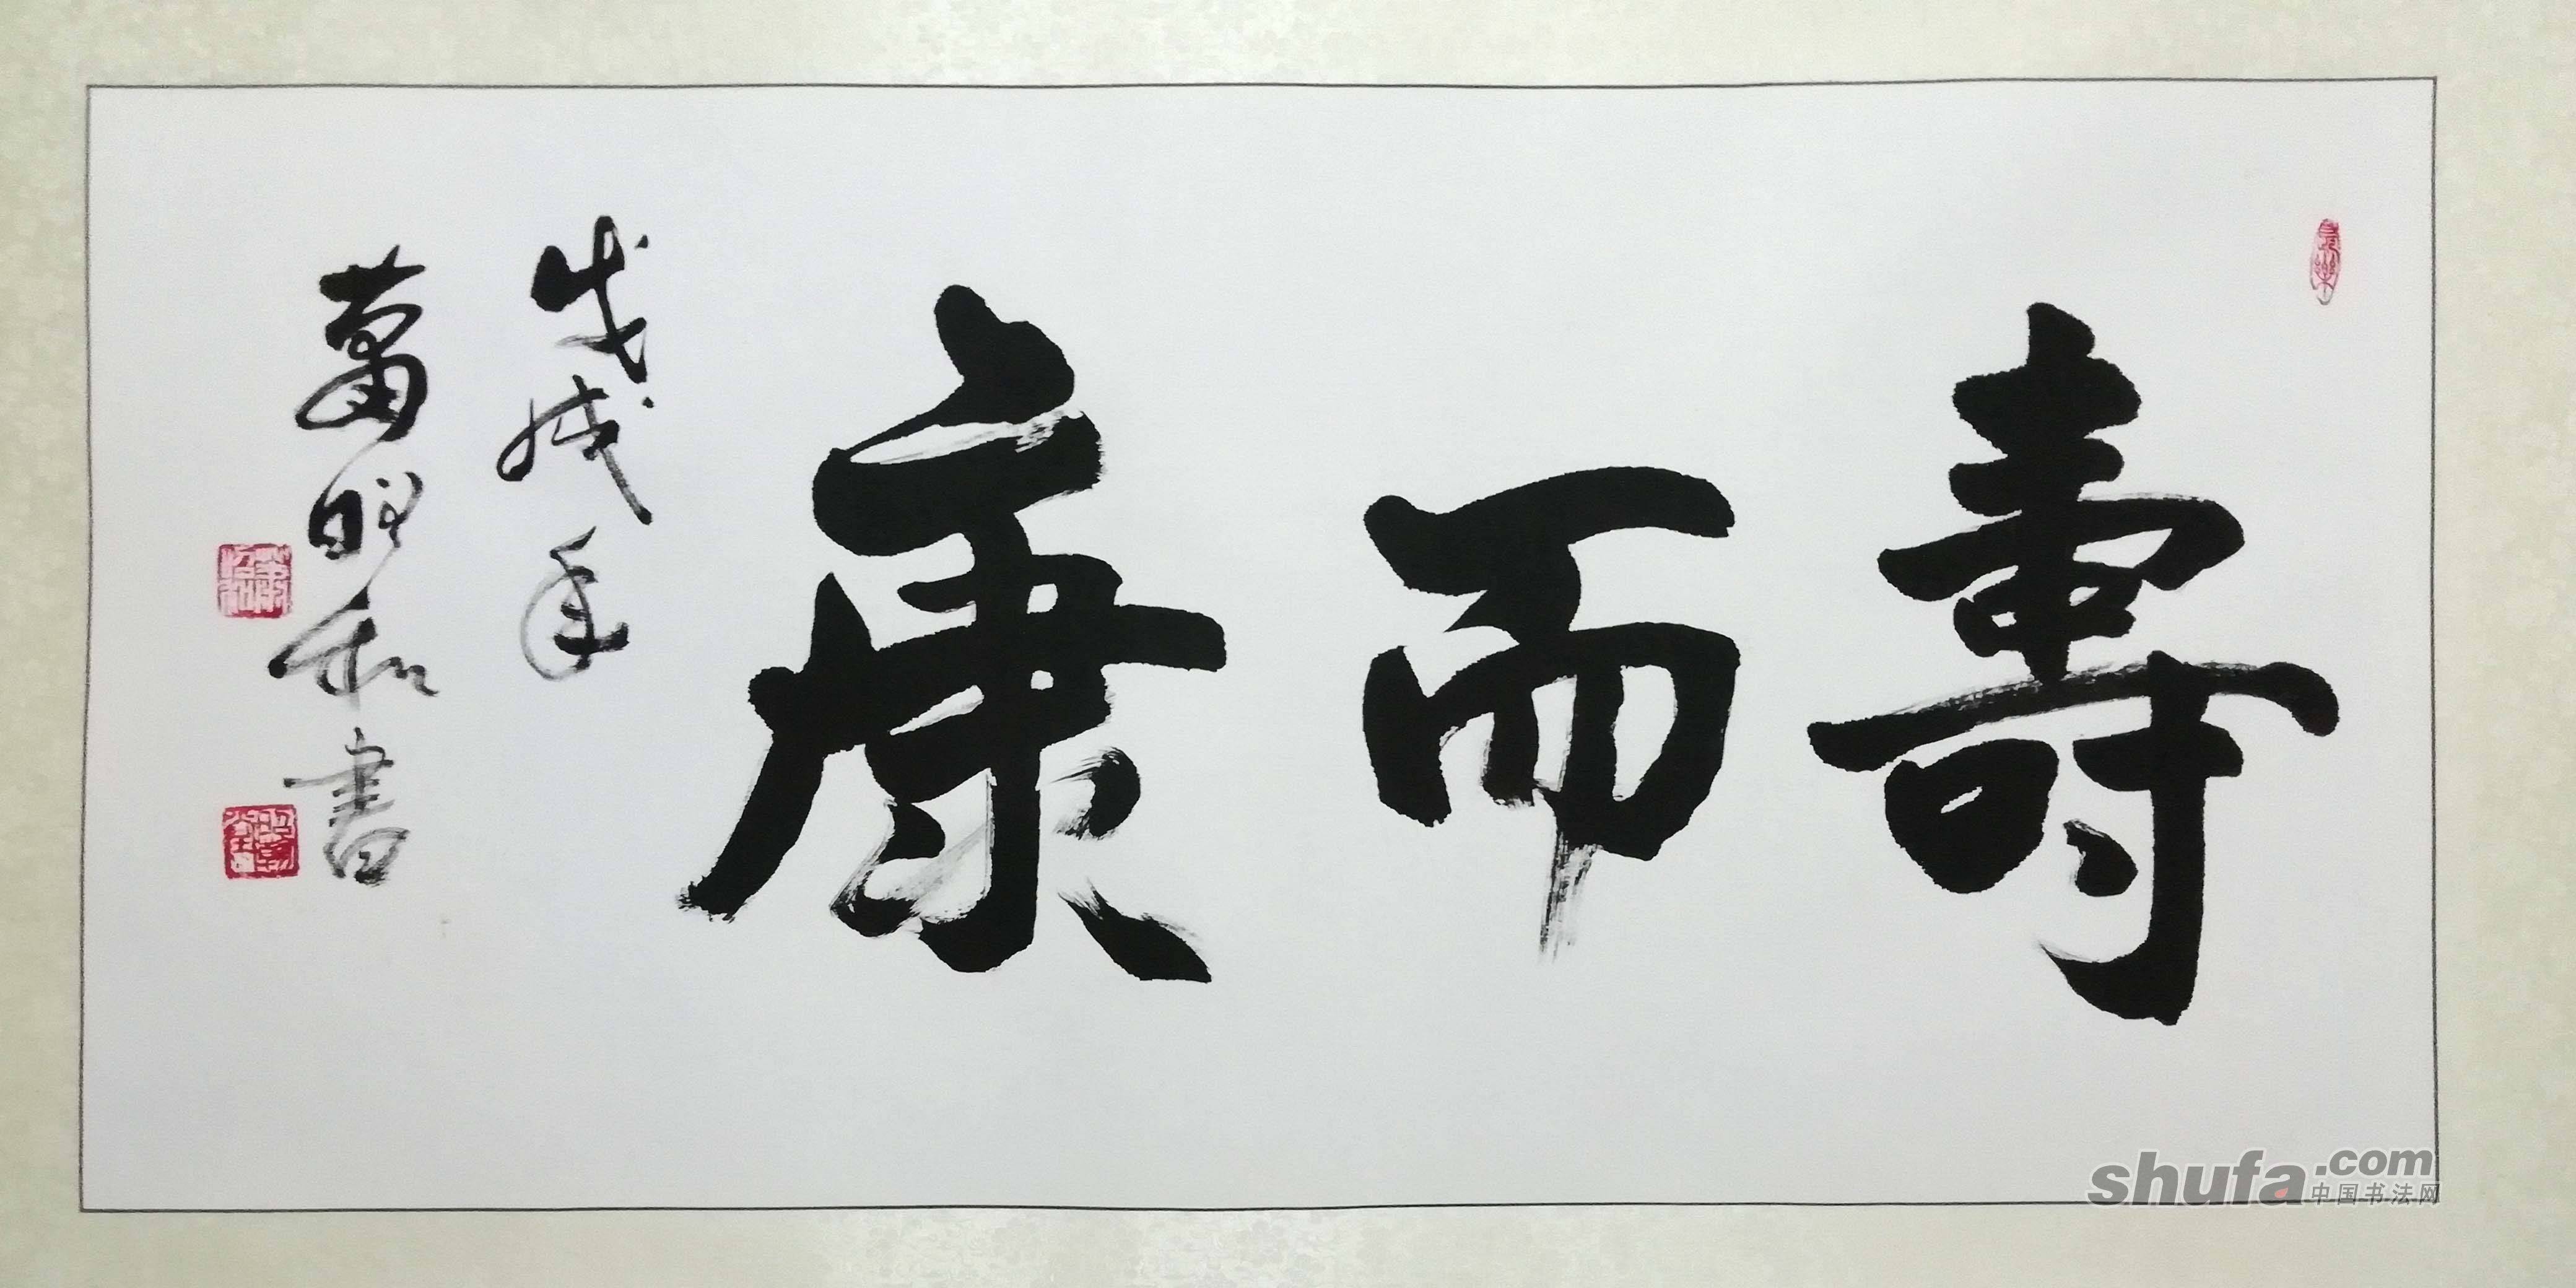 壽而康
戊戌年
萬昭和書
shufa.com
中国书法网